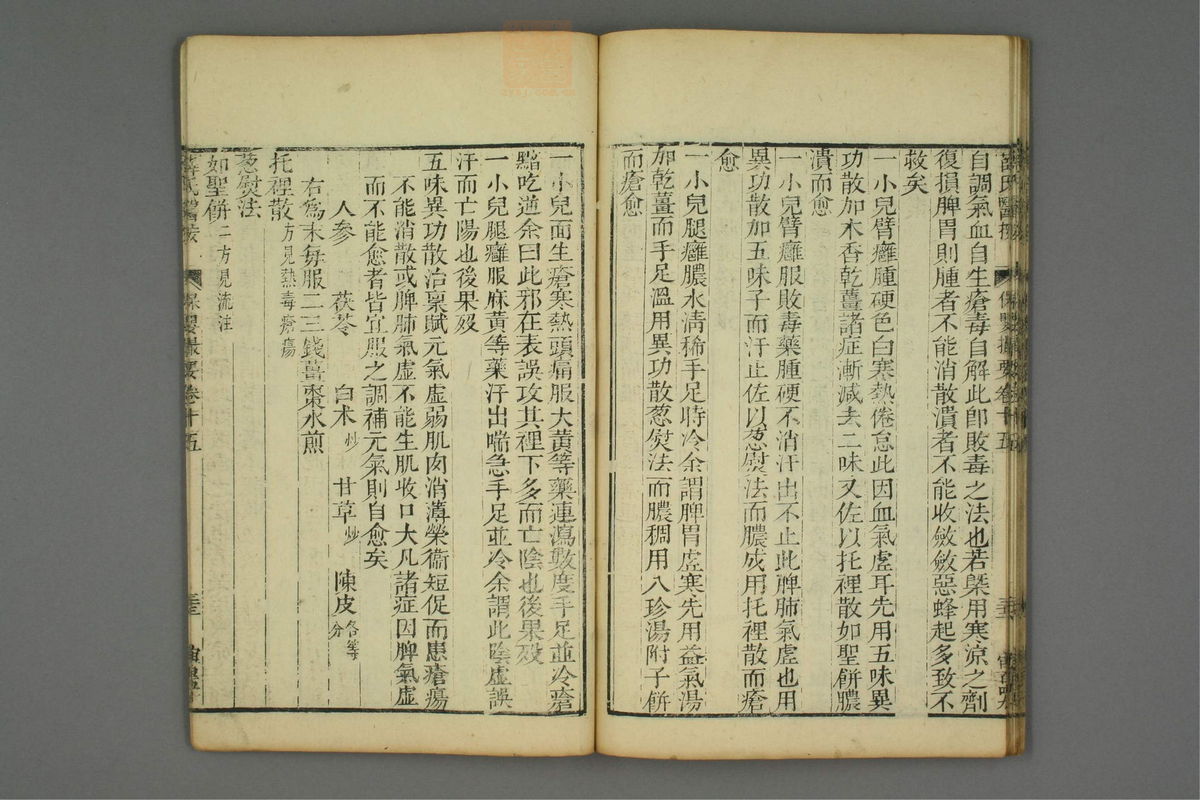 自調氣血自生瘡毒自解此卽敗毒之法也若槩用寒涼之劑
復損脾胃則腫者不能消散潰者不能收斂斂惡蜂起多致不
救矣
一小兒臂癰腫硬色白寒熱倦怠此因血氣虛耳先用五味異
功散加木香乾薑諸症漸減去二味又佐以托裡散如聖餅膿
潰而愈
一小兒臂癰服敗毒藥腫硬不消汗出不止此脾肺氣虛也用
異功散加五味子而汗止佐以葱熨法而膿成用托裡散而瘡
愈
一小兒腿癰膿水清稀手足時冷余謂脾胃虛寒先用益氣湯
加乾薑而手足溫用異功散葱熨法而膿稠用八珍湯附子餅
而瘡愈
一小兒面生瘡寒熱頭痛服大黃等藥連瀉數度手足並冷瘡
黯吃逆余曰此邪在表誤攻其裡下多而亡陰也後果歿
一小兒腿癰服麻黃等藥汗出喘急手足並冷余謂此陰虛誤
汗而亡陽也後果歿
五味異功散治稟賦元氣虛弱肌肉消薄榮衞短促而患瘡瘍
不能消散或脾肺氣虛不能生肌收口大凡諸症因脾氣虛
而不能愈者皆宜服之調補元氣則自愈矣
人參 茯苓 白术炒 甘草炒 陳皮各等分
右爲末每服二三錢薑棗水煎
托裡散方見熱毒瘡瘍
葱熨法
如聖餅二方見流注
薛氏醫按 保嬰撮要卷十五